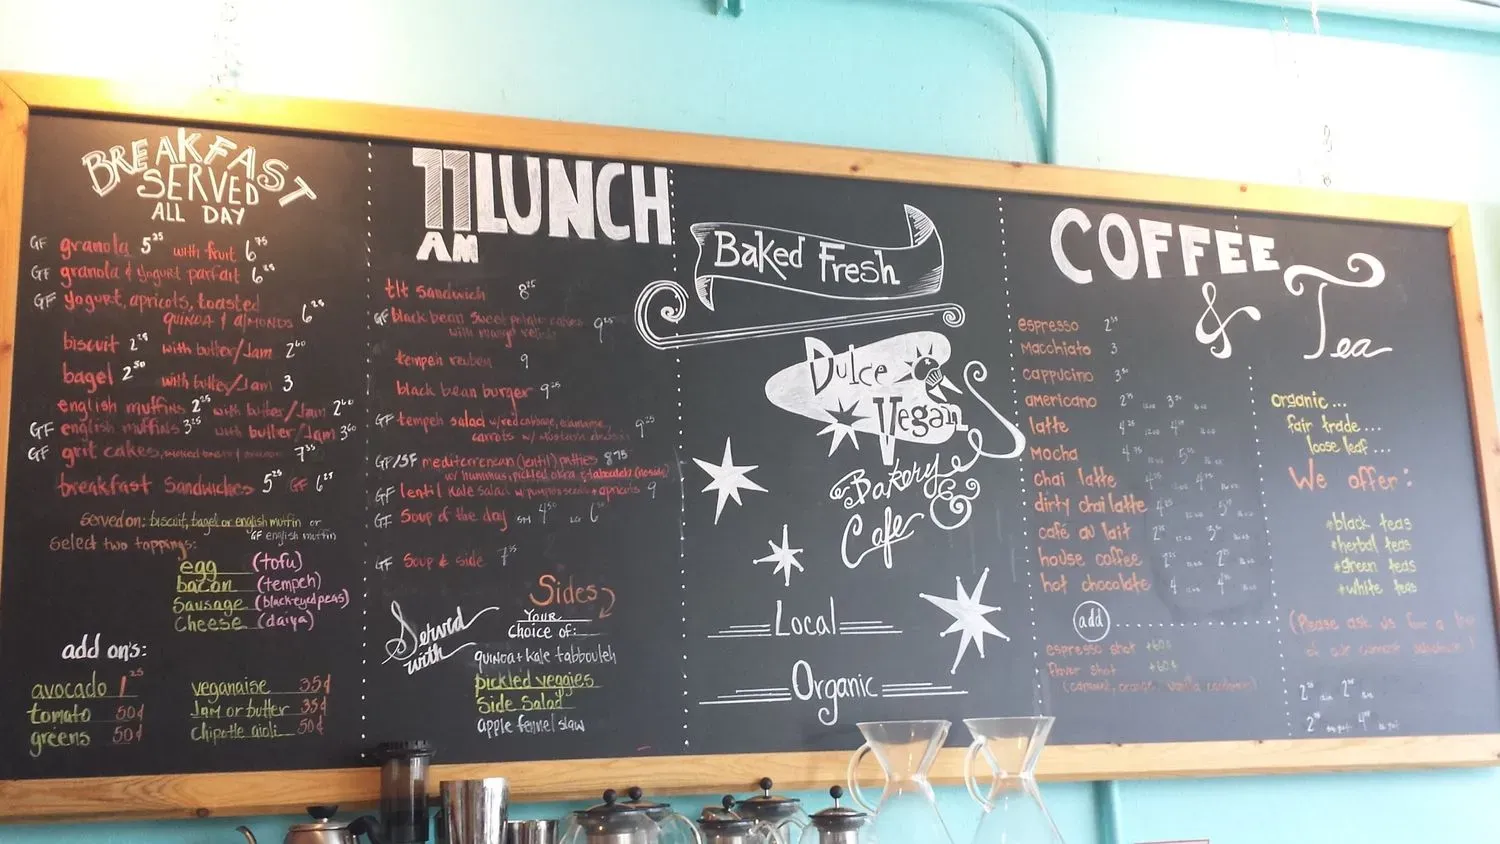 BREAKFAST
SERVED
ALL DAY
GF granola 5²⁵ with fruit 6⁷⁵
GF granola & yogurt parfait 6²⁵
GF yogurt, apricots, toasted
quinoa & almonds 6²⁵
biscuit 2²⁵ with butter/Jam 2⁶⁰
bagel 2⁵⁰ with butter/Jam 3
english muffins 2²⁵ with butter/Jam 2⁶⁰
GF english muffins 3²⁵ with butter/Jam 3⁶⁰
GF grit cakes,
breakfast sandwiches 5²⁵ GF 6²⁵
served on: biscuit, bagel or english muffin or
GF english muffin
select two toppings:
egg (tofu)
bacon (tempeh)
Sausage (blackeyed peas)
Cheese (daiya)
add on's:
avocado 1²⁵
tomato 50¢
greens 50¢
veganaise 35¢
Jam or butter 35¢
Chipotle aioli 50¢
11 AM LUNCH
tlt sandwich 8²⁵
GF black bean sweet potato cakes
with mango relish 9²⁵
tempeh reuben 9
black bean burger 9²⁵
GF tempeh salad w/red cabbage, edamame,
carrots w/ 9²⁵
GF/SF mediterranean (lentil) patties 8⁷⁵
w/ hummus, pickled okra & tabouleh (no side)
GF lentil kale salad w/ pumpkin seeds & apricots 9
GF Soup of the day SM 4⁵⁰ LG 6
GF Soup & side 7²⁵
Served with
Sides
Your
choice of:
quinoa + kale tabbouleh
pickled veggies
side salad
apple fennel slaw
Baked Fresh
Dulce
Vegan
Bakery &
Cafe
Local
Organic
COFFEE
& Tea
espresso
macchiato 3
cappucino
americano
latte
mocha
chai latte
dirty chai latte
cafe au lait
house coffee
hot chocolate
add
espresso shot +60¢
flavor shot +60¢
organic...
fair trade...
loose leaf...
We offer:
black teas
herbal teas
green teas
white teas
(Please ask us for a
)